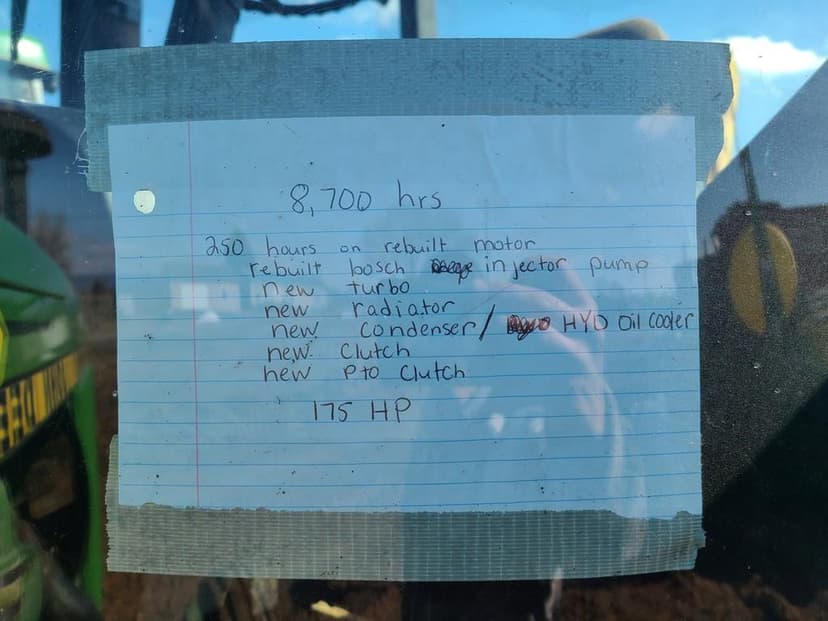 8,700 hrs
250 hours on rebuilt motor
rebuilt bosch injector pump
new turbo
new radiator
new condenser/ HYD Oil Cooler
new Clutch
new Pto Clutch
175 HP